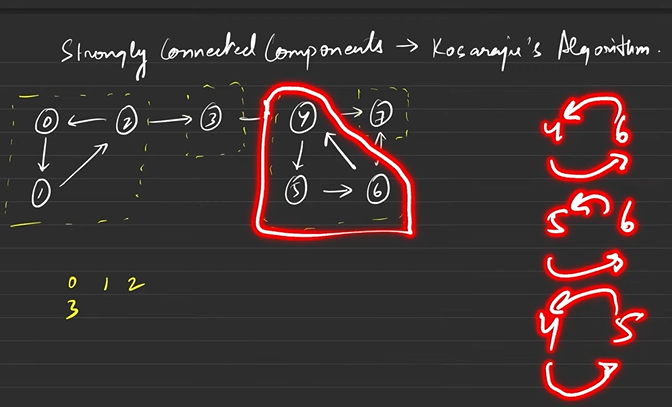 Strongly Connected Components → Kosaraju's Algorithm.
0 2 3 4 7
1 5 6
0 1 2
3
4 6
5 6
4 5